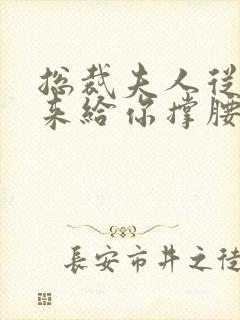 总裁夫人从
来给你撑腰
長安市井之徒